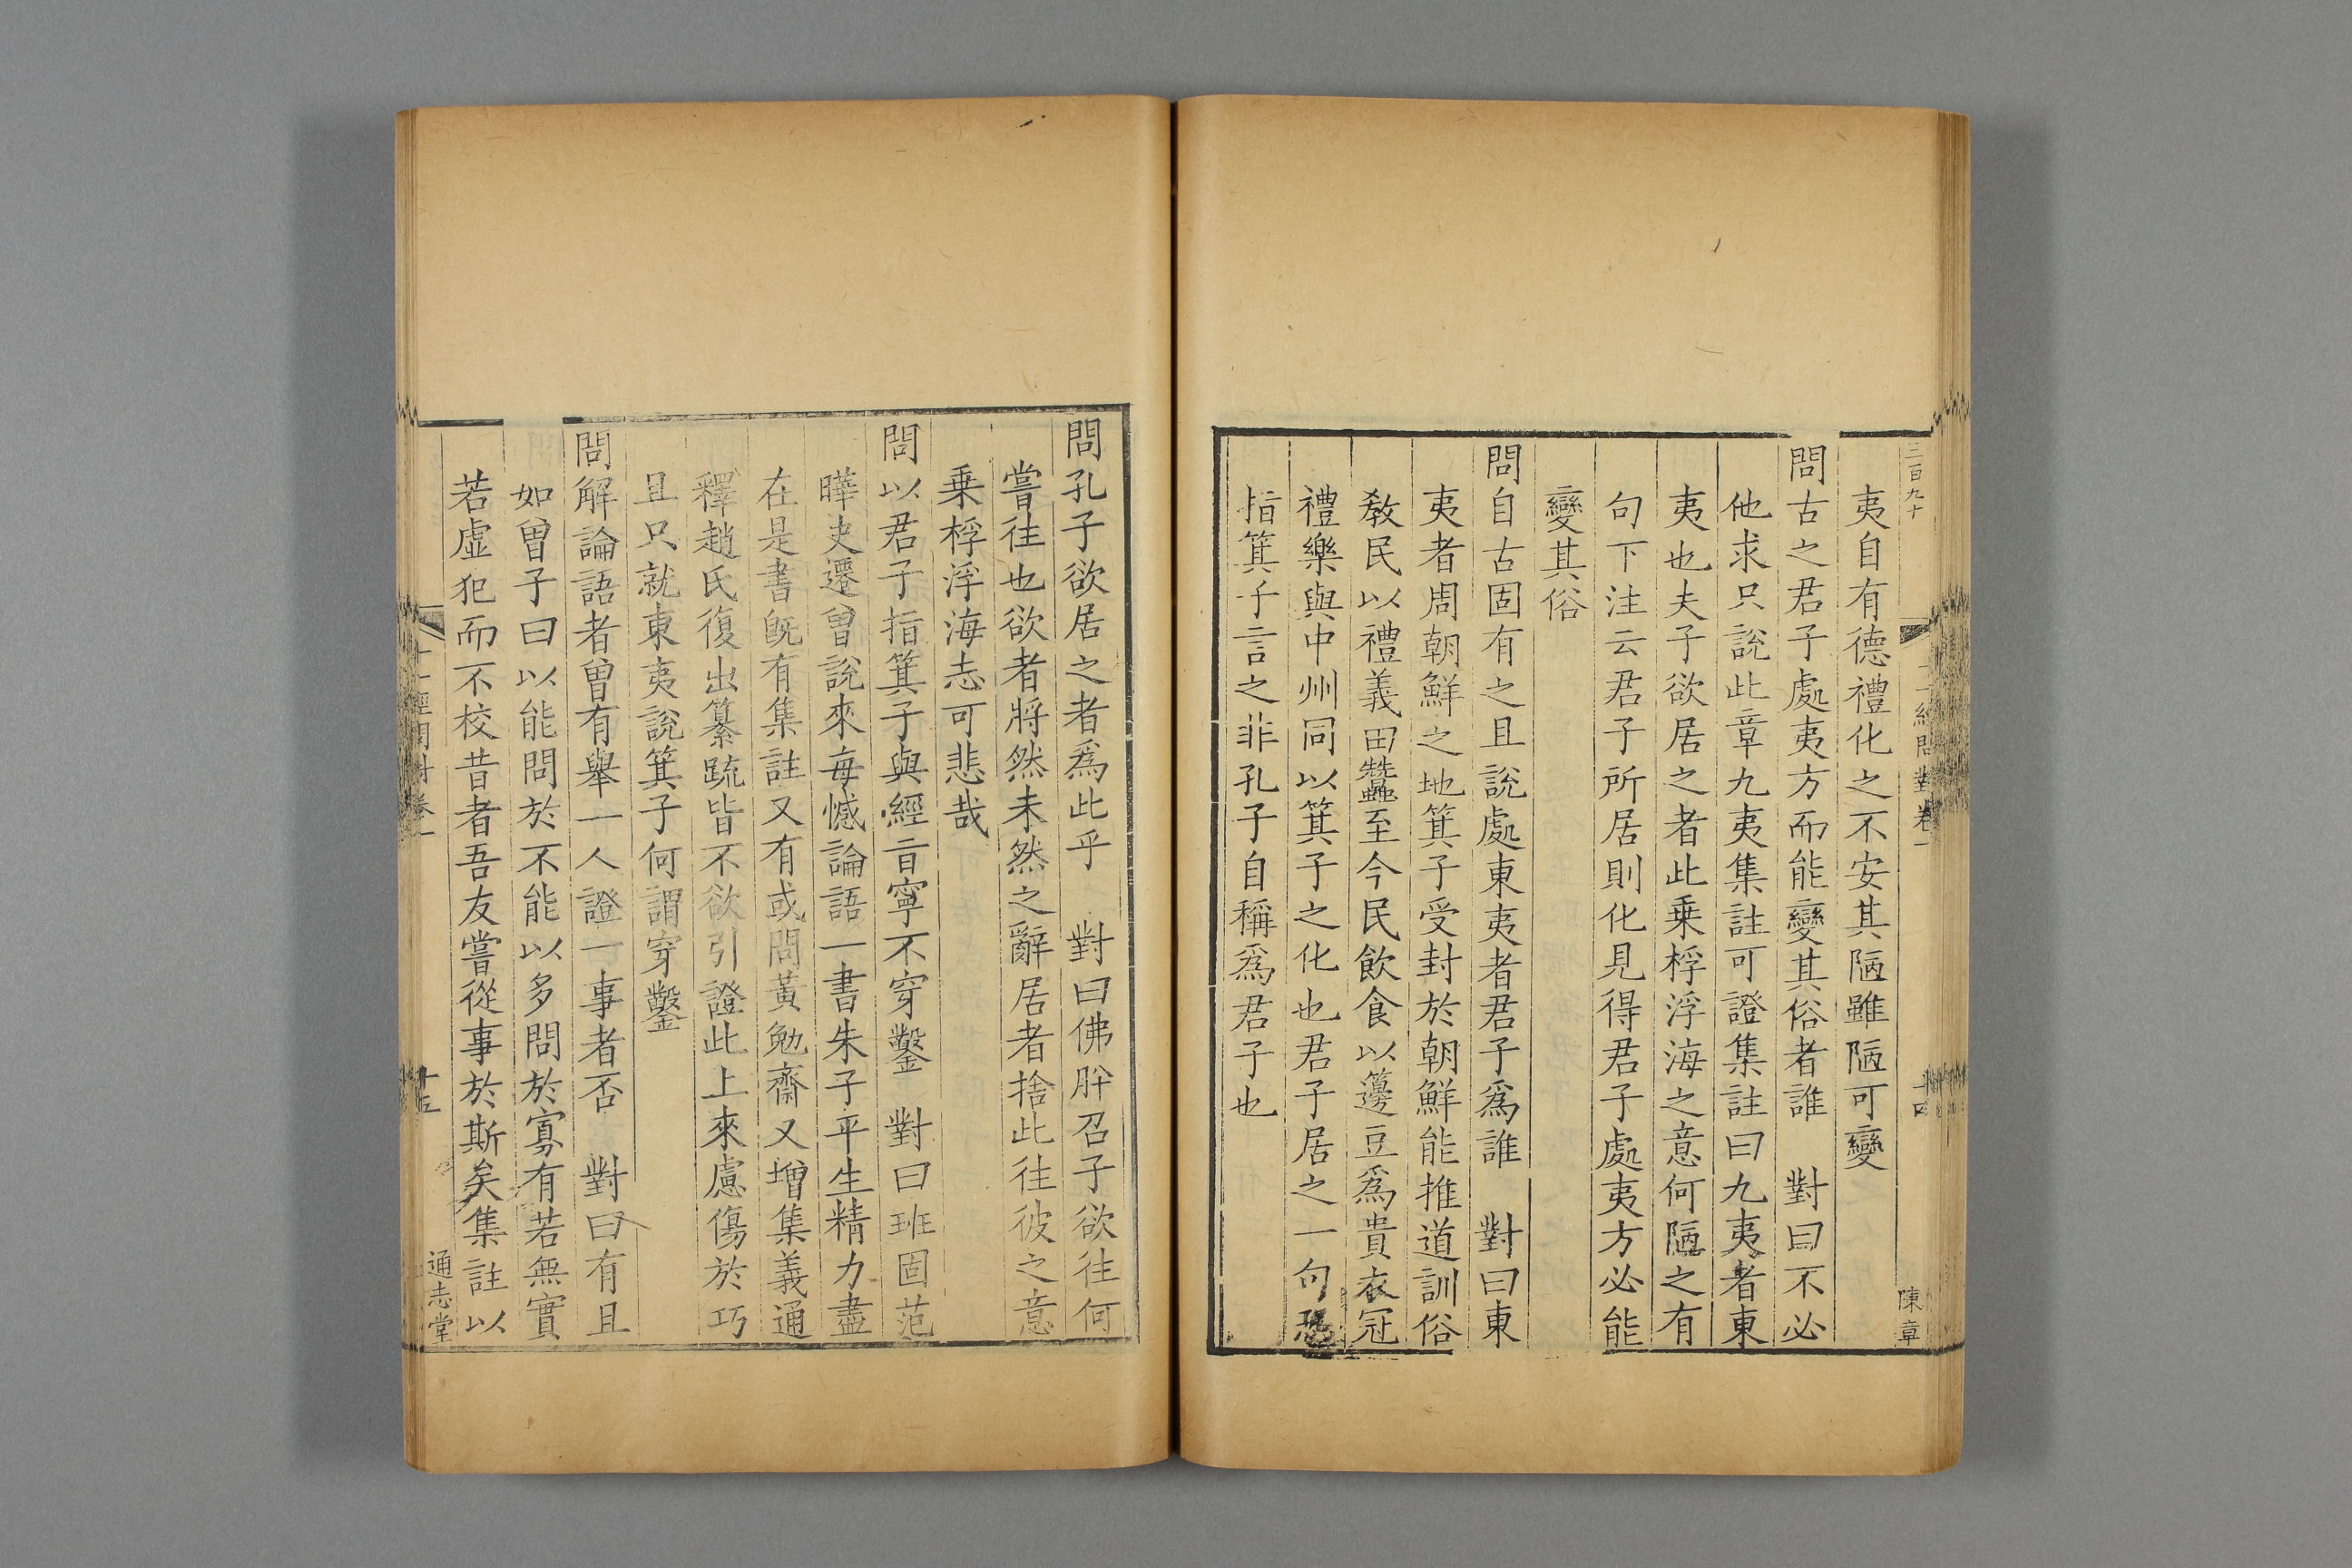 三百九十
十一經問對卷一
十四
陳章
夷自有德禮化之不安其陋雖陋可變
問古之君子處夷方而能變其俗者誰　對曰不必
他求只說此章九夷集註可證集註曰九夷者東
夷也夫子欲居之者此乗桴浮海之意何陋之有
句下注云君子所居則化見得君子處夷方必能
變其俗
問自古固有之且說處東夷者君子爲誰　對曰東
夷者周朝鮮之地箕子受封於朝鮮能推道訓俗
敎民以禮義田蠶至今民飲食以籩豆爲貴衣冠
禮樂與中州同以箕子之化也君子居之一句恐
指箕子言之非孔子自稱爲君子也
問孔子欲居之者爲此乎　對曰佛肸召子欲往何
嘗往也欲者將然未然之辭居者捨此往彼之意
乗桴浮海志可悲哉
問以君子指箕子與經旨寧不穿鑿　對曰班固范
曄史遷曾說來每憾論語一書朱子平生精力盡
在是書旣有集註又有或問黃勉齋又增集義通
釋趙氏復出纂疏皆不欲引證此上來慮傷於巧
且只就東夷說箕子何謂穿鑿
問解論語者曾有舉一人證一事者否　對曰有且
如曾子曰以能問於不能以多問於寡有若無實
若虛犯而不校昔者吾友嘗從事於斯矣集註以
十一經問對卷一
十五
通志堂